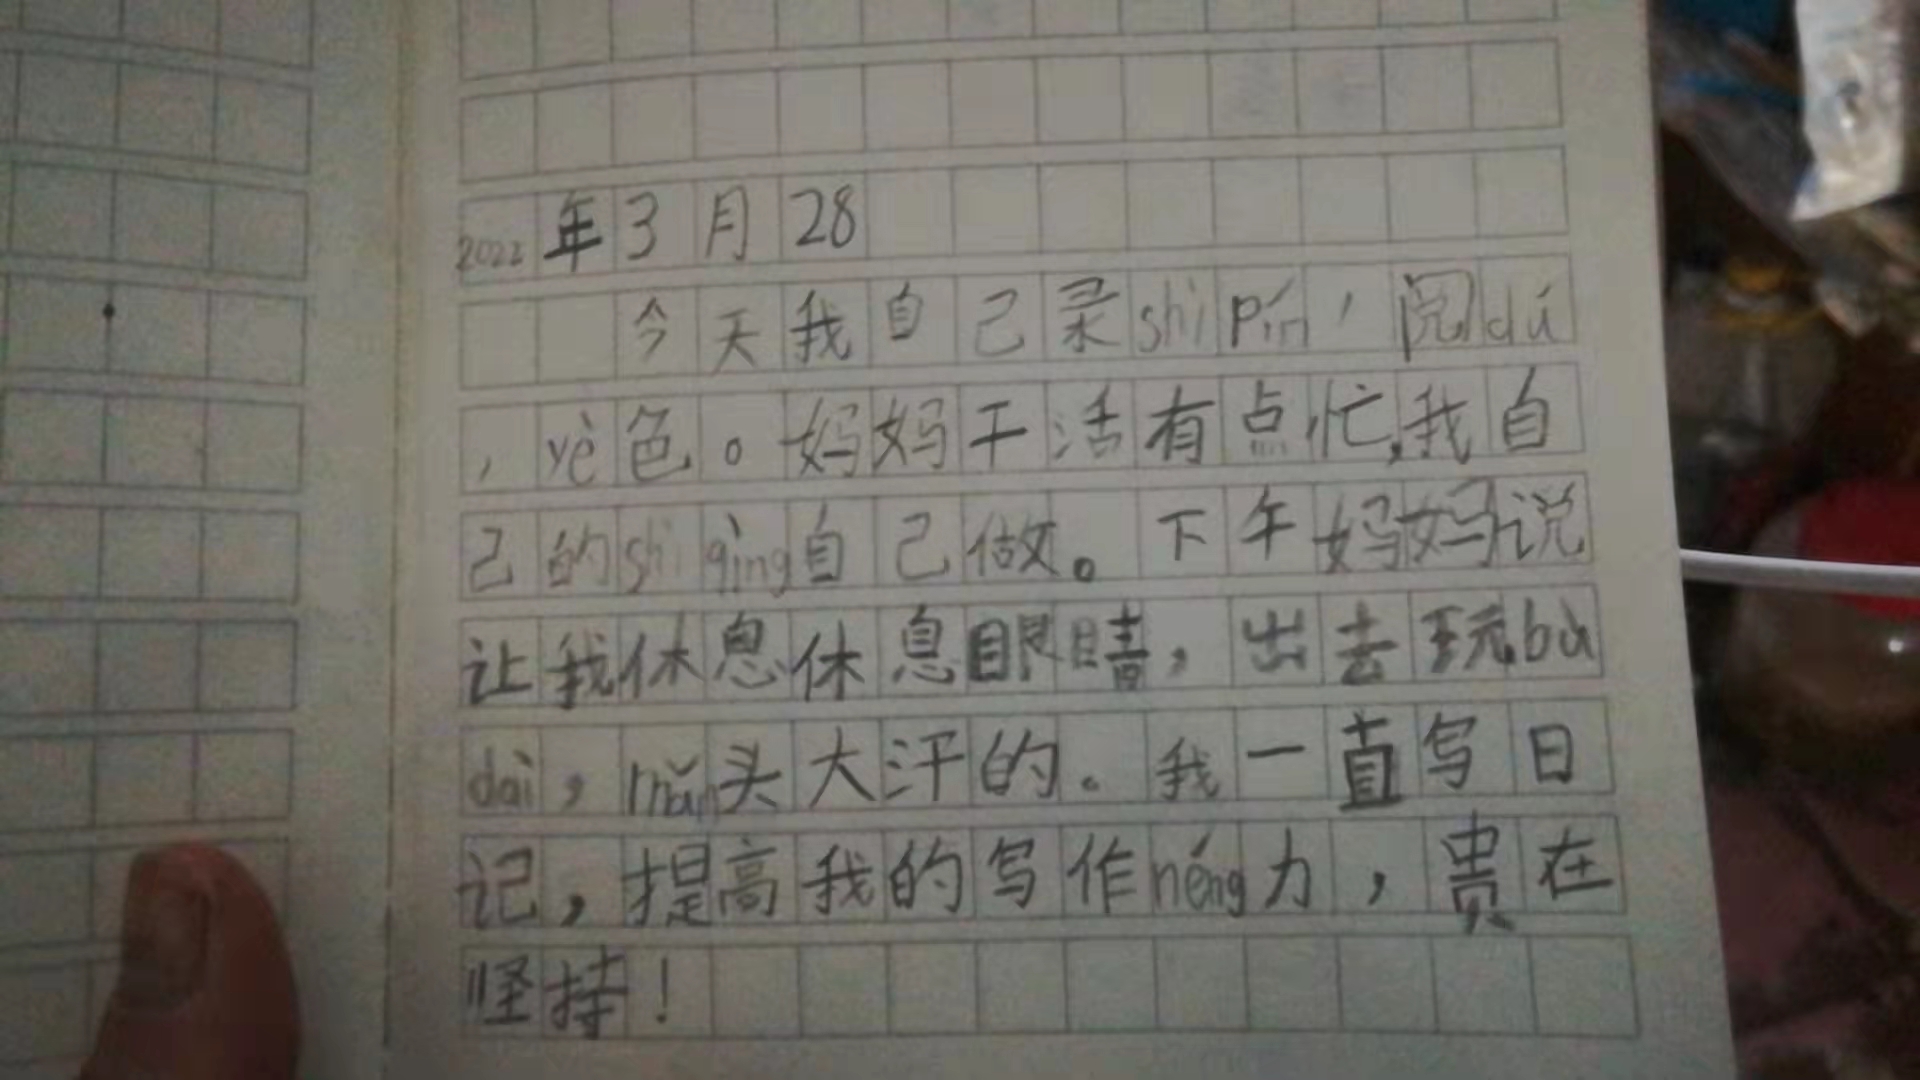 2022年3月28
今天我自己录shì pín，阅dú
，yè色。妈妈干活有点忙，我自
己的shì qìng自己做。下午妈妈说
让我休息休息眼睛，出去玩bù
dài，mǎn头大汗的。我一直写日
记，提高我的写作néng力，贵在
坚持！